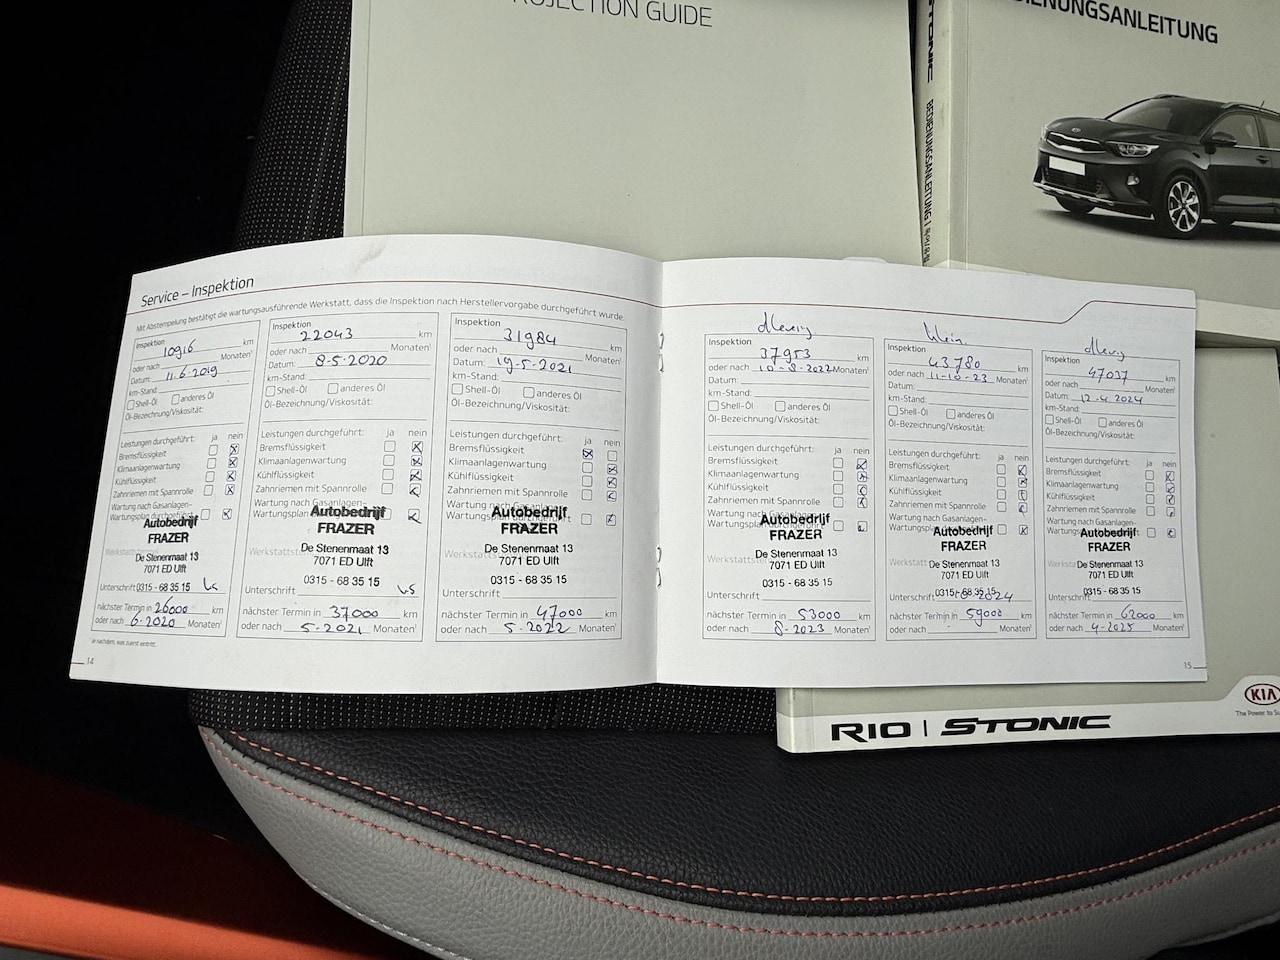 ROJECTION GUIDE
STONIC
BEDIENUNGSANLEITUNG
IENUNGSANLEITUNG
Service – Inspektion
Mit Abstempelung bestätigt die wartungsausführende Werkstatt, dass die Inspektion nach Herstellervorgabe durchgeführt wurde.
Inspektion
10916 km
oder nach Monaten¹
Datum: 11.6.2019
km-Stand:
Shell-Öl anderes Öl
Öl-Bezeichnung/Viskosität:
Leistungen durchgeführt: ja nein
Bremsflüssigkeit
Klimaanlagenwartung
Kühlflüssigkeit
Zahnriemen mit Spannrolle
Wartung nach Gasanlagen-
Wartungsplan durchgeführt
Autobedrijf
FRAZER
De Stenenmaat 13
7071 ED Ulft
Unterschrift 0315 - 68 35 15
nächster Termin in 26000 km
oder nach 6-2020 Monaten¹
¹ Je nachdem, was zuerst eintritt.
14
Inspektion
22043 km
oder nach Monaten¹
Datum: 8-5-2020
km-Stand:
Shell-Öl anderes Öl
Öl-Bezeichnung/Viskosität:
Leistungen durchgeführt: ja nein
Bremsflüssigkeit
Klimaanlagenwartung
Kühlflüssigkeit
Zahnriemen mit Spannrolle
Wartung nach Gasanlagen-
Autobedrijf
FRAZER
De Stenenmaat 13
7071 ED Ulft
0315 - 68 35 15
Unterschrift
nächster Termin in 37000 km
oder nach 5-2021 Monaten¹
Inspektion
31984 km
oder nach Monaten¹
Datum: 19-5-2021
km-Stand:
Shell-Öl anderes Öl
Öl-Bezeichnung/Viskosität:
Leistungen durchgeführt: ja nein
Bremsflüssigkeit
Klimaanlagenwartung
Kühlflüssigkeit
Zahnriemen mit Spannrolle
Autobedrijf
FRAZER
De Stenenmaat 13
7071 ED Ulft
0315 - 68 35 15
Unterschrift
nächster Termin in 47000 km
oder nach 5-2022 Monaten¹
Inspektion
37953 km
oder nach 10-8-2022 Monaten¹
Datum:
km-Stand:
Shell-Öl anderes Öl
Öl-Bezeichnung/Viskosität:
Leistungen durchgeführt: ja nein
Bremsflüssigkeit
Klimaanlagenwartung
Kühlflüssigkeit
Zahnriemen mit Spannrolle
Wartung nach Gasanlagen-
Autobedrijf
FRAZER
De Stenenmaat 13
7071 ED Ulft
0315 - 68 35 15
Unterschrift
nächster Termin in 53000 km
oder nach 8-2023 Monaten¹
Inspektion
43780 km
oder nach 11-10-23 Monaten¹
Datum:
km-Stand:
Shell-Öl anderes Öl
Öl-Bezeichnung/Viskosität:
Leistungen durchgeführt: ja nein
Bremsflüssigkeit
Klimaanlagenwartung
Kühlflüssigkeit
Zahnriemen mit Spannrolle
Wartung nach Gasanlagen-
Autobedrijf
FRAZER
De Stenenmaat 13
7071 ED Ulft
0315 - 68 35 15
Unterschrift
nächster Termin in 59000 km
oder nach Monaten¹
Inspektion
47037 km
oder nach Monaten¹
Datum: 12-4-2024
km-Stand:
Shell-Öl anderes Öl
Öl-Bezeichnung/Viskosität:
Leistungen durchgeführt: ja nein
Bremsflüssigkeit
Klimaanlagenwartung
Kühlflüssigkeit
Zahnriemen mit Spannrolle
Wartung nach Gasanlagen-
Autobedrijf
FRAZER
De Stenenmaat 13
7071 ED Ulft
0315 - 68 35 15
Unterschrift
nächster Termin in 62000 km
oder nach 4-2025 Monaten¹
15
RIO | STONIC
KIA
The Power to Su